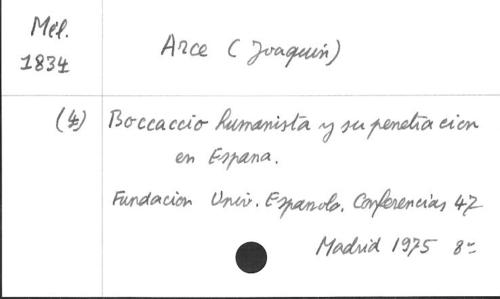 Mél.
1834
Arce (Joaquín)
(4) Boccaccio humanista y su penetracion
en Espana.
Fundacion Univ. Espanola. Conferencias 47
Madrid 1975 8º